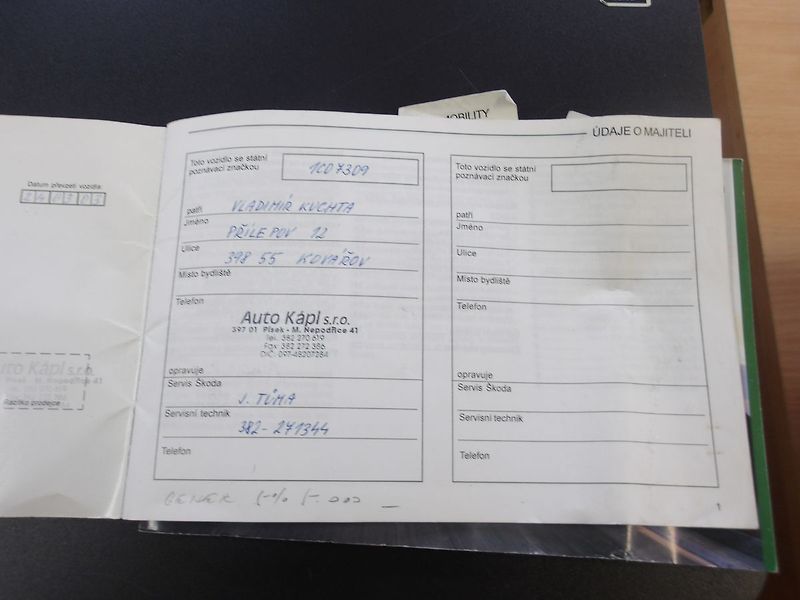 MOBILITY
ÚDAJE O MAJITELI
Datum převzetí vozidla
240303
Auto Kápl s.r.o.
Písek - M. Nepodřice 41
Razítko prodejce
Toto vozidlo se státní
poznávací značkou
1C0 7309
patří
VLADIMÍR KUCHTA
Jméno
PŘÍLEPOV 12
Ulice
398 55 KOVÁŘOV
Místo bydliště
Telefon
Auto Kápl s.r.o.
397 01 Písek - M. Nepodřice 41
Tel. 382 270 619
Fax 382 272 386
DIČ: 097-48207284
opravuje
Servis Škoda
J. TŮMA
Servisní technik
382-271344
Telefon
5% 5.000
Toto vozidlo se státní
poznávací značkou
patří
Jméno
Ulice
Místo bydliště
Telefon
opravuje
Servis Škoda
Servisní technik
Telefon
1